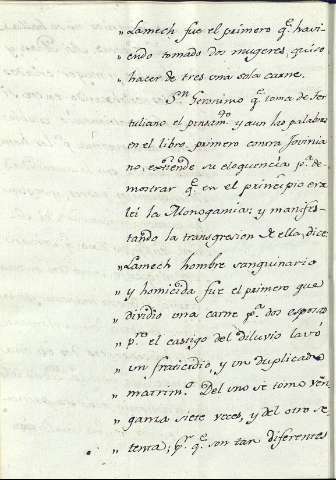 „ Lamech fue el primero q.e havi-
„ endo tomado dos mugeres, quiso
„ hacer de tres una sola carne.
S.n Geronimo q.e toma de Ter
tuliano el pensam.to y aun las palabras
en el libro primero contra Jovinia
no, extiende su eloquencia p.a de-
mostrar q.e en el principio era
lei la Monogamia; y manifes-
tando la transgresion de ella, dice
„ Lamech hombre sanguinario
„ y homicida fue el primero que
„ dividio una carne p.a dos esposas
„ p.ro el castigo del diluvio lavó
„ un fraticidio, y un duplicado
„ matrim.o Del uno se toma ven
„ ganza siete veces, y del otro se
„ tenta; p.r q.e son tan diferentes